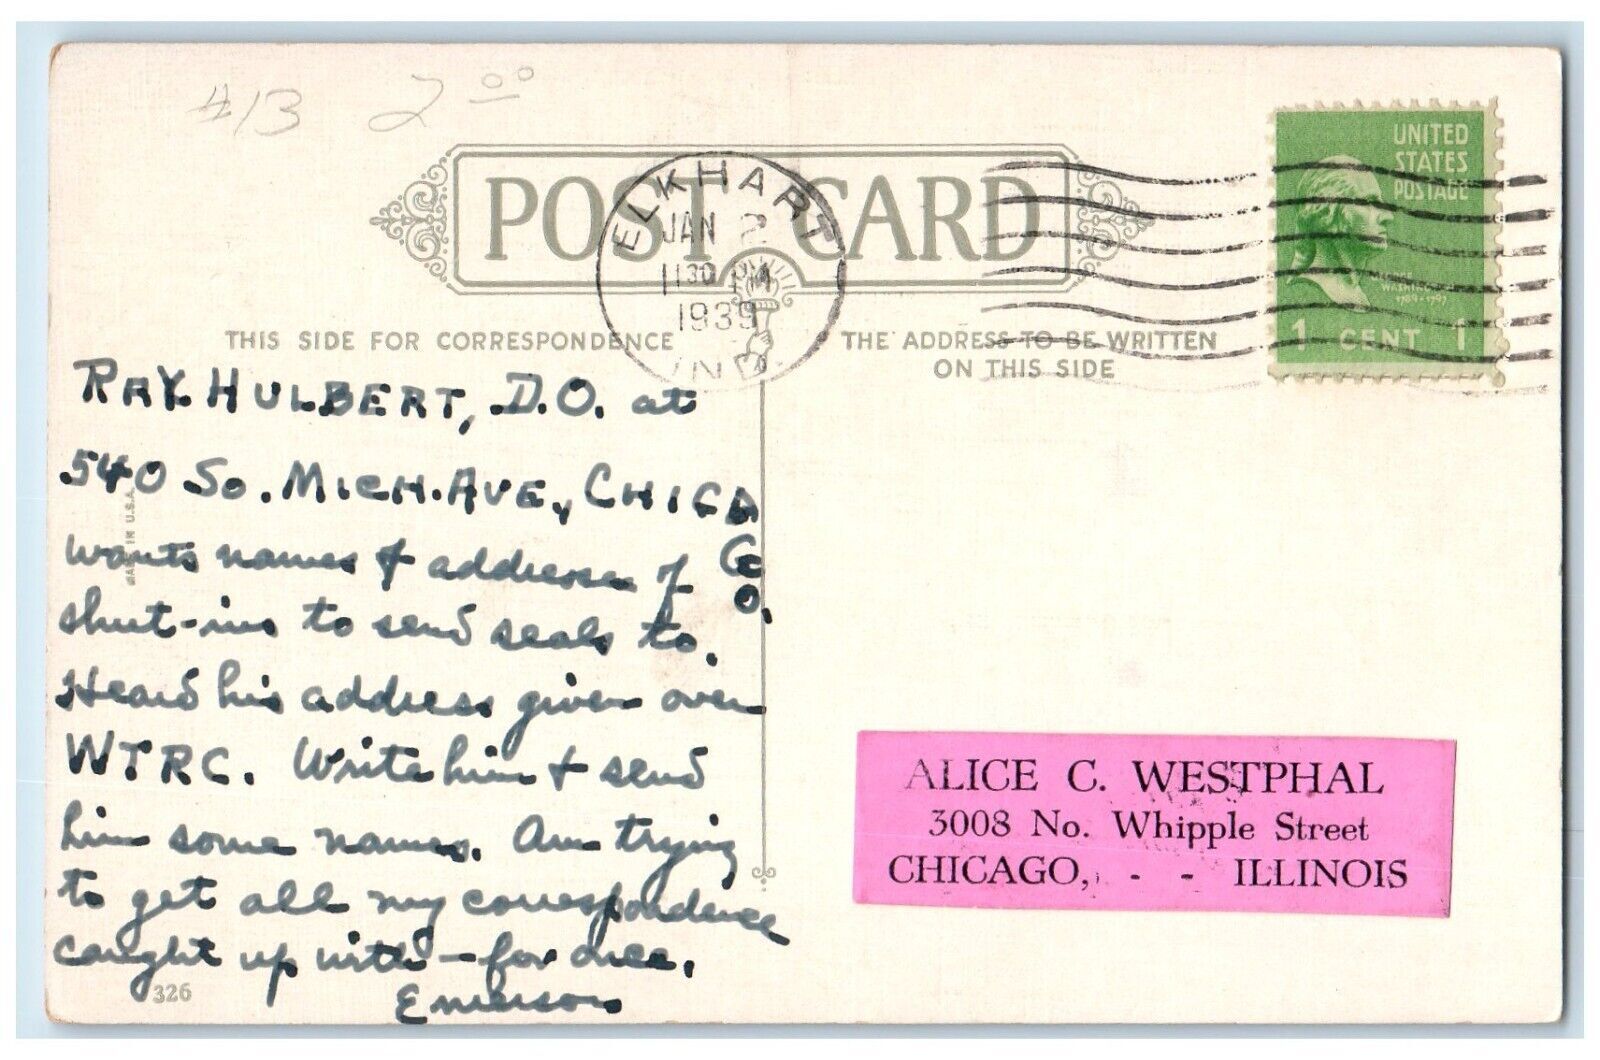 #13 2 00
UNITED
STATES
POSTAGE
WASHINGTON
1789-1797
1 CENT 1
POST CARD
ELKHART
JAN 2
1130 PM
1939
IND.
THIS SIDE FOR CORRESPONDENCE
THE ADDRESS TO BE WRITTEN
ON THIS SIDE
RAY HULBERT, D.O. at
540 So. MICH. AVE., CHICA
GO.
wants names & addresses of
shut-ins to send seals to.
Heard his address given over
WTRC. Write him & send
him some names. Am trying
to get all my correspondence
caught up with - for once.
Emerson
MADE IN U.S.A.
326
ALICE C. WESTPHAL
3008 No. Whipple Street
CHICAGO, - - ILLINOIS